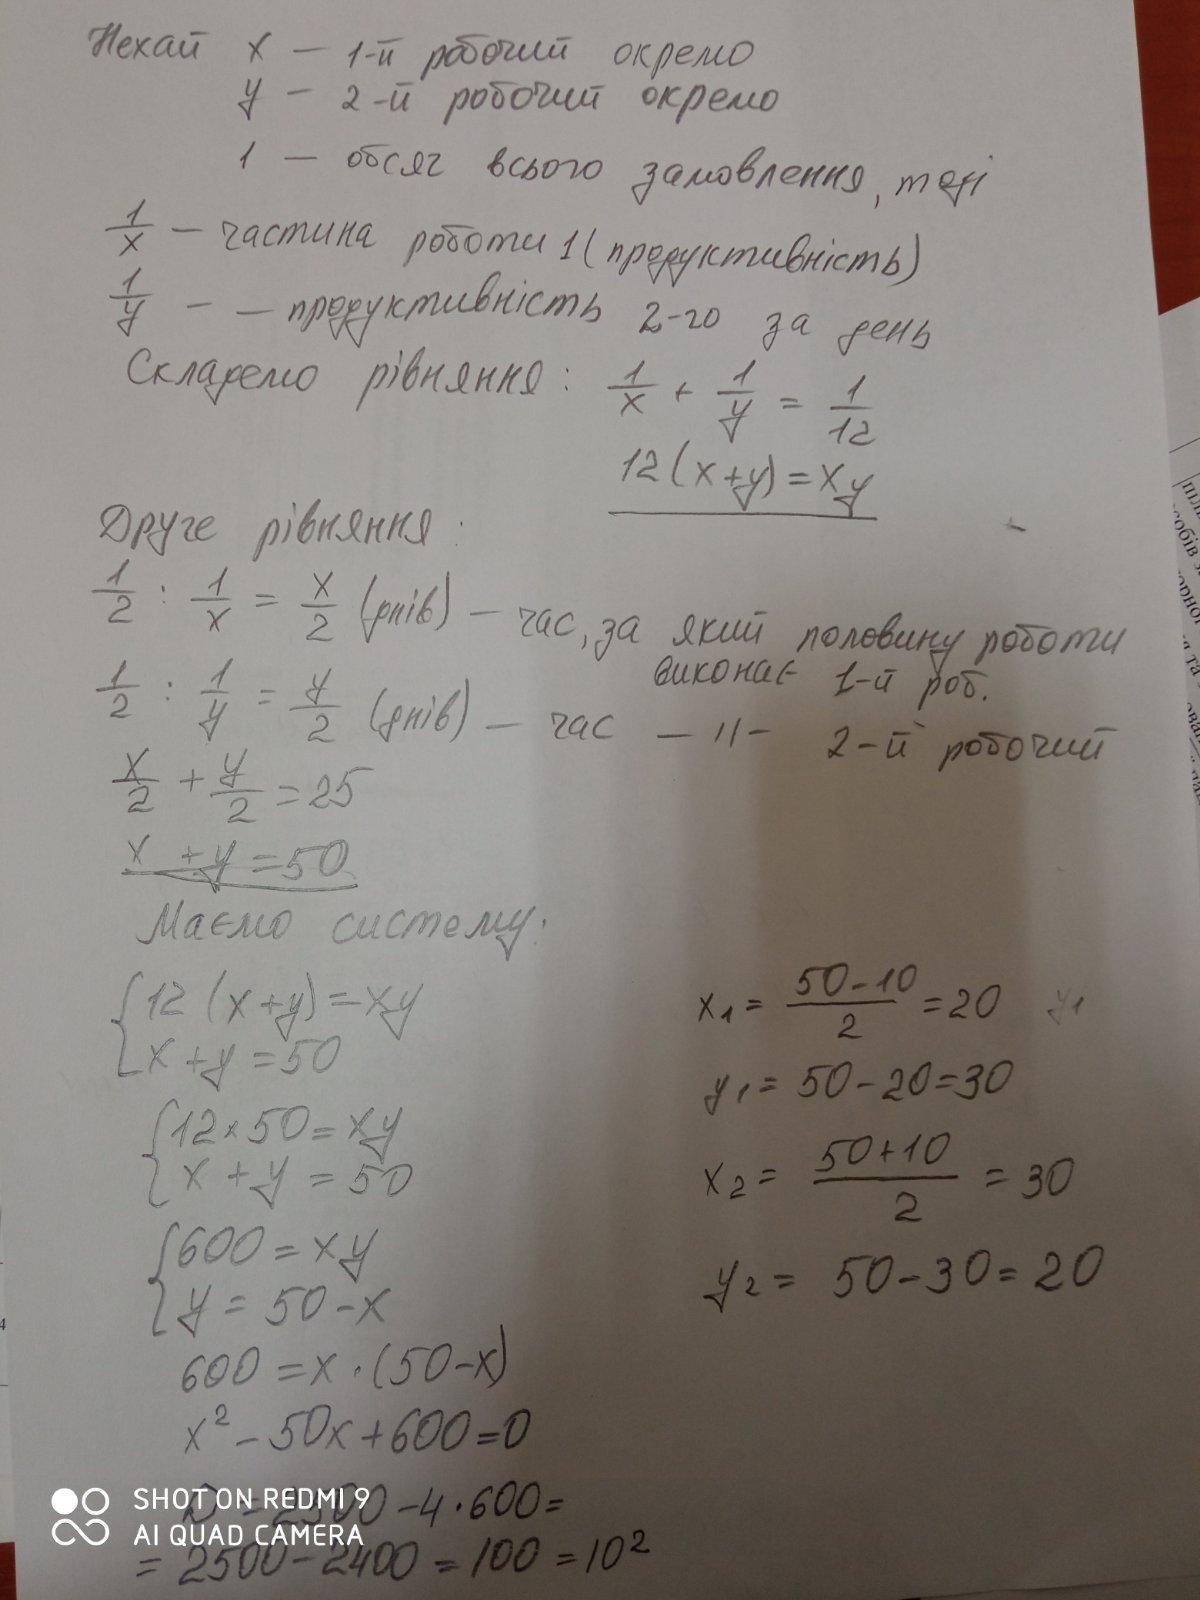 Нехай x — 1-й робочий окремо
y — 2-й робочий окремо
1 — обсяг всього замовлення, тоді
1/x — частина роботи 1 (продуктивність)
1/y - — продуктивність 2-го за день
Складемо рівняння: 1/x + 1/y = 1/12
12(x+y)=xy
Друге рівняння:
1/2 : 1/x = x/2 (днів) — час, за який половину роботи
виконає 1-й роб.
1/2 : 1/y = y/2 (днів) — час — 11 — 2-й робочий
x/2 + y/2 = 25
x + y = 50
Маємо систему:
{12 (x+y) = xy
x + y = 50
{12 × 50 = xy
x + y = 50
{600 = xy
y = 50 - x
600 = x · (50-x)
x² - 50x + 600 = 0
D = 2500 - 4 · 600 =
= 2500 - 2400 = 100 = 10²
x₁ = (50-10)/2 = 20 y₁
y₁ = 50 - 20 = 30
x₂ = (50+10)/2 = 30
y₂ = 50 - 30 = 20
SHOT ON REDMI 9
AI QUAD CAMERA